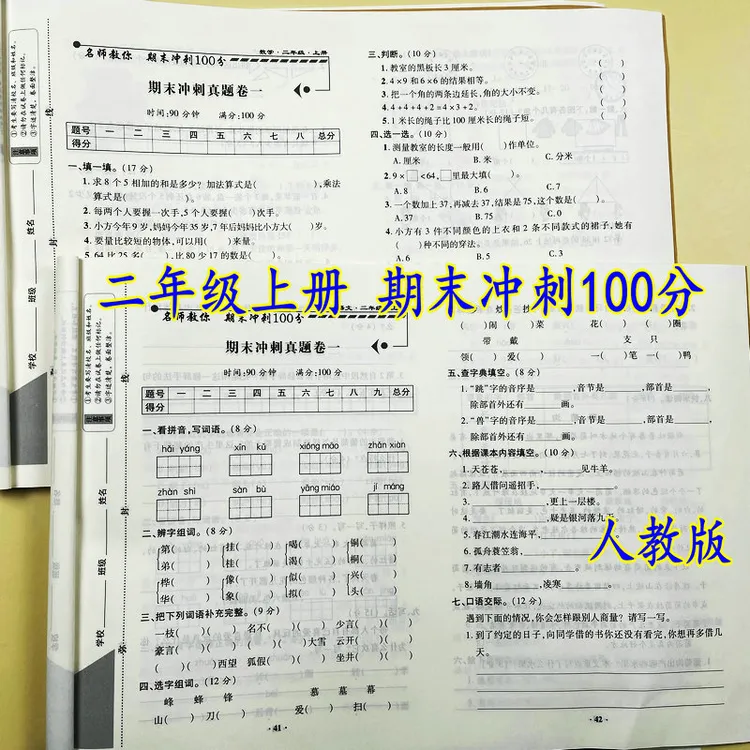 名师教你 期末冲刺100分
数学·二年级·上册
期末冲刺真题卷一
时间:90分钟 满分:100分
题号 一 二 三 四 五 六 七 八 总分
得分
一、填一填。(17分)
1.求8个5相加的和是多少?加法算式是( ),乘法
算式是( )。
2.每两个人要握一次手,5个人要握( )次手。
3.小方今年9岁,妈妈今年35岁,7年后妈妈比小方大( )岁。
4.要量比较短的物体,可以用( )来量。
5.64比25多( ),比80少17的数是( )。
三、判断。(10分)
1.教室的黑板长3厘米。 ( )
2.4×9和6×6的结果相等。 ( )
3.把一个角的两条边延长,角的大小不变。 ( )
4.4+4+4+2=4×3+2。 ( )
5.1米长的绳子比100厘米长的绳子短。 ( )
四、选一选。(10分)
1.测量教室的长度一般用( )作单位。
A.厘米 B.米 C.分米
2.9×□<64,□里最大填( )。
A.8 B.6 C.7
3.一个数加上37,再减去37,结果是75,这个数是( )。
A.37 B.75 C.0
4.小方有3件不同颜色的上衣和2条不同款式的裙子,她有
( )种不同的穿法。
二年级上册 期末冲刺100分
人教版
①考生要写清校名、班级和姓名。
②请勿在试卷上做任何标记。
③字迹清楚,卷面整洁。
注意事项
学校 班级 姓名
封 线
名师教你 期末冲刺100分
期末冲刺真题卷一
时间:90分钟 满分:100分
题号 一 二 三 四 五 六 七 八 九 总分
得分
一、看拼音,写词语。(8分)
hǎi yáng xīn kǔ xióng māo zhǎn xiàn
zhàn shì sàn bù yāng miáo jí máng
二、辨字组词。(8分)
第( ) 挂( ) 喝( ) 铜( )
弟( ) 桂( ) 渴( ) 桐( )
桦( ) 像( ) 似( ) 兴( )
华( ) 象( ) 拟( ) 头( )
三、把下列词语补充完整。(9分)
一枝( )( ) 名不( )( ) 少言( )( )
豪言( )( ) ( )( )大雪 云开( )( )
( )( )西望 狐假( )( ) 坐井( )( )
四、选字组词。(12分)
峰 蜂 锋 慕 墓 幕
山( ) 刀( ) 爱( ) 扫( )
·41·
( )闹 ( )菜 花( ) ( )圈
带 戴 支 只
领( ) ( )爱 一( )笔 一( )鸭
五、查字典填空。(8分)
1.“跳”字的音序是 ,音节是 ,部首是 ,
除部首外还有 画。
2.“兽”字的音序是 ,音节是 ,部首是 ,
除部首外还有 画。
六、根据课本内容填空。(10分)
1.天苍苍, , 见牛羊。
2.路人借问遥招手, 。
3. ,更上一层楼。
4. ,疑是银河落九
5.春江潮水连海平,
6.孤舟蓑笠翁,
7.有志者 。
8.墙角 ,凌寒 。
七、口语交际。(12分)
遇到下面的情况,你会怎样跟别人商量?请写一写。
1.到了约定的日子,向同学借的书你还没有看完,你想再多借几
天。
·42·